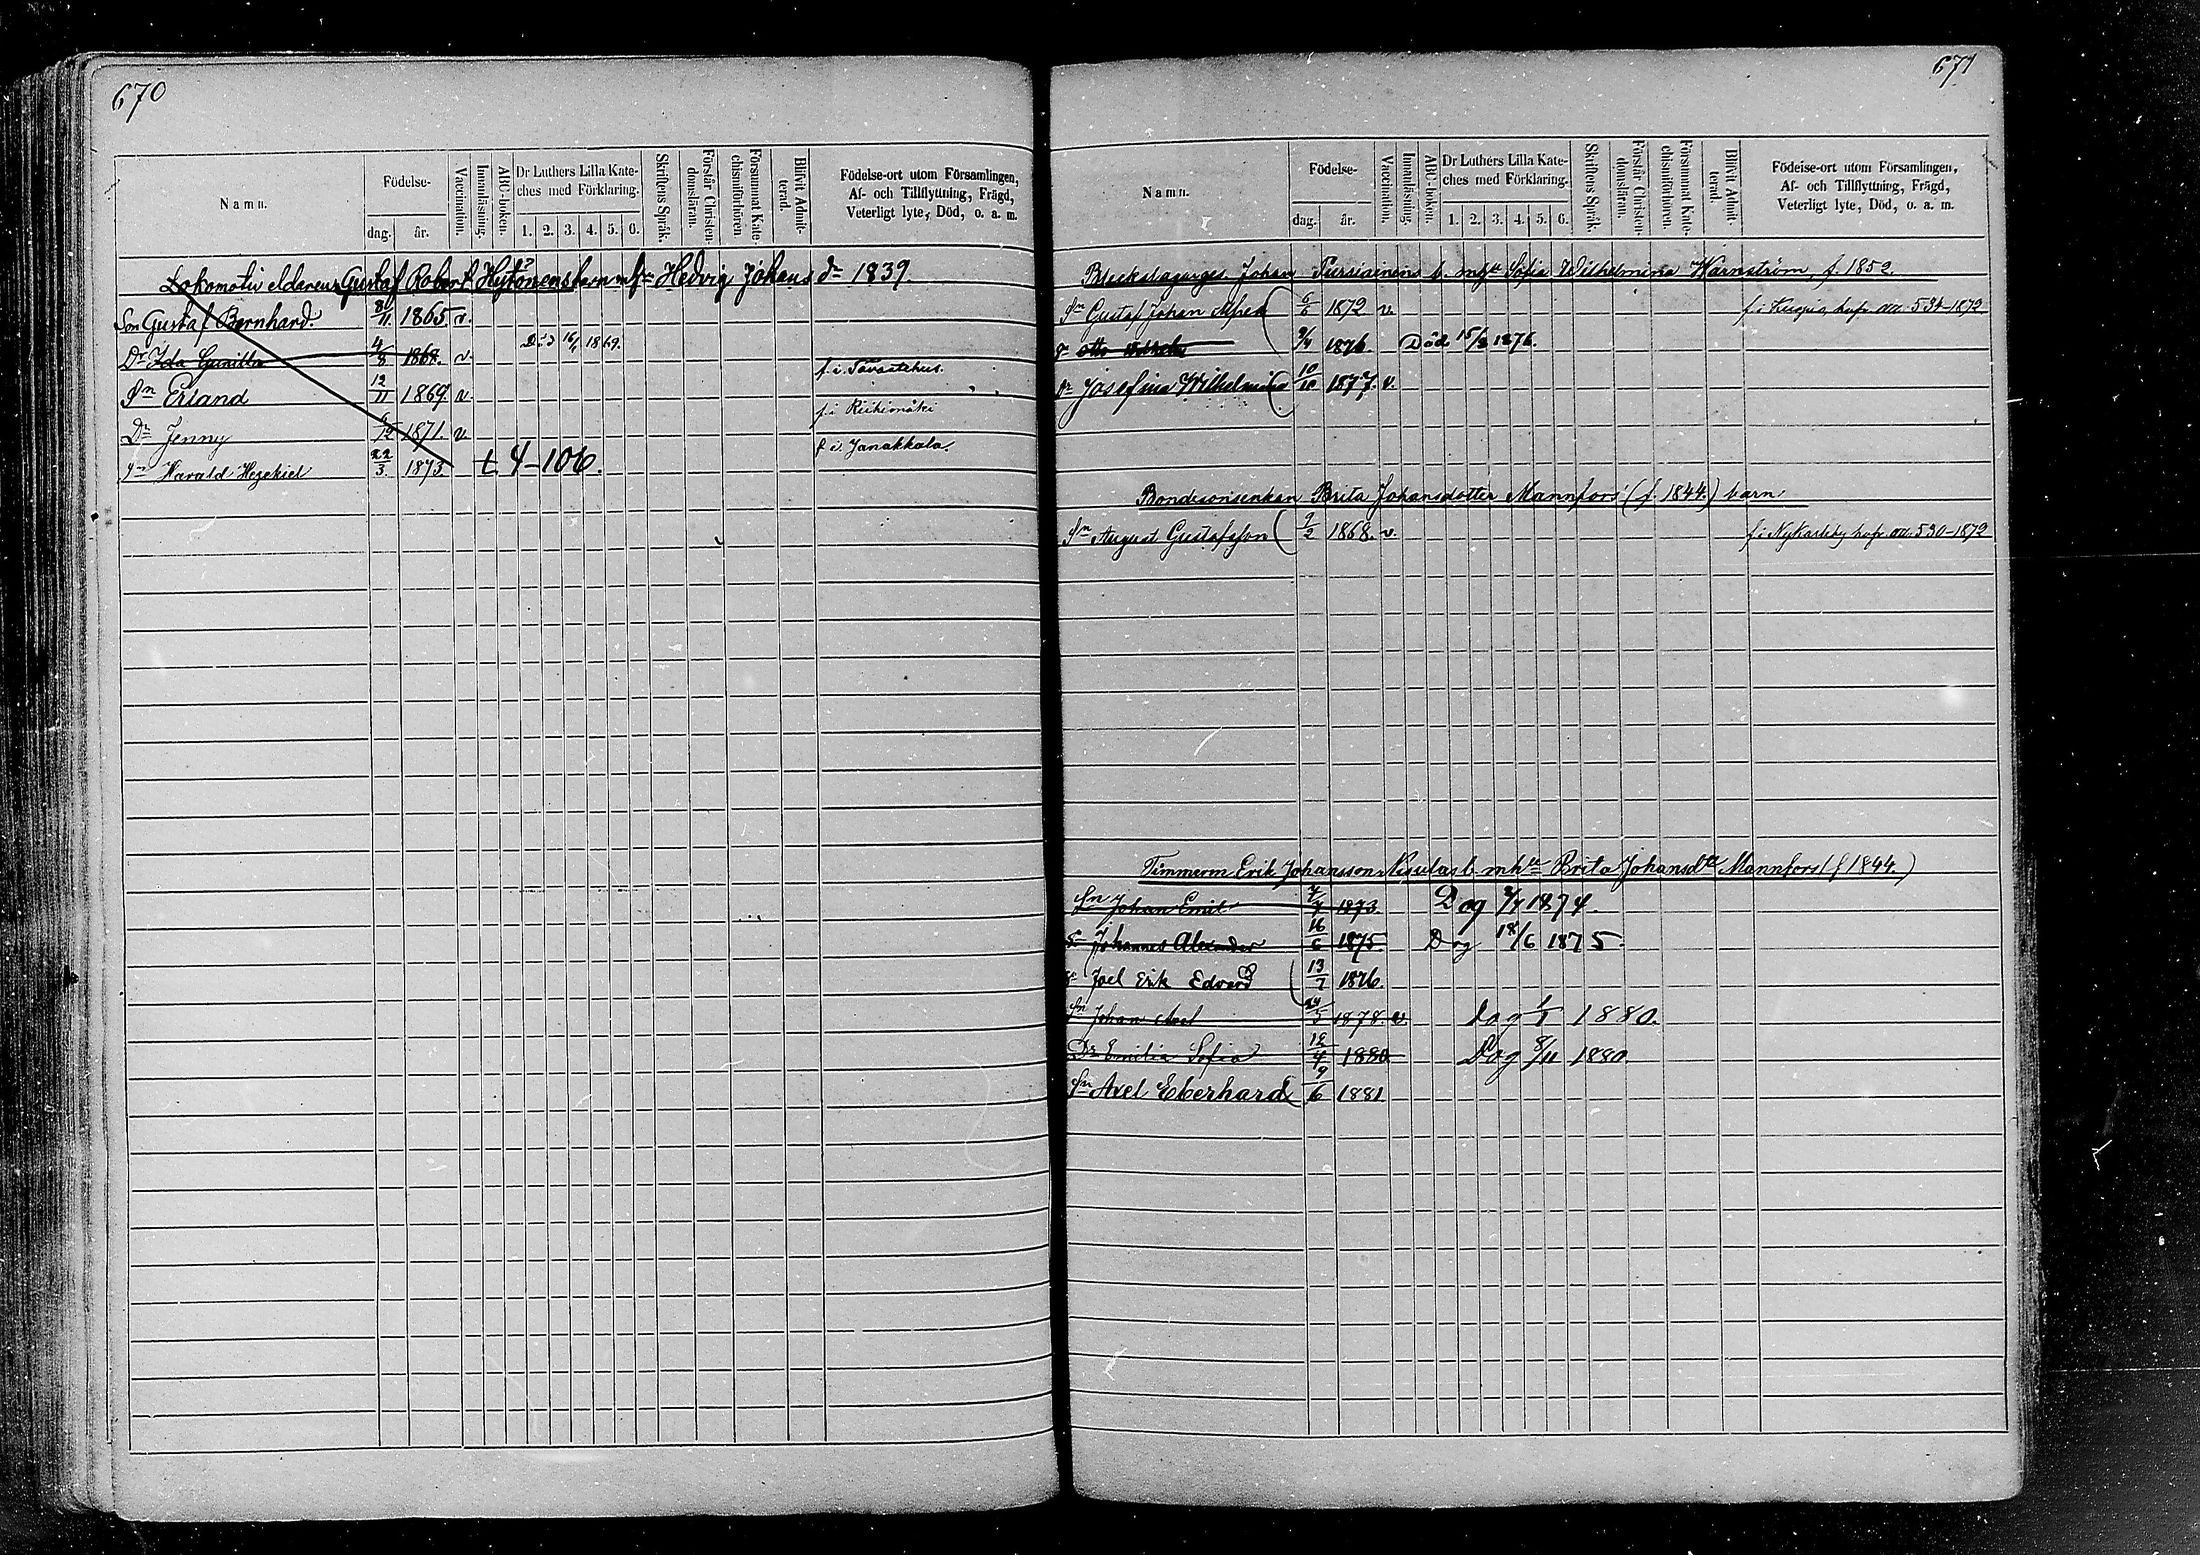 670
Namn.
Födelse-
dag.
år.
Vaccination.
Innanläsning.
ABC-boken.
Dr Luthers Lilla Kate-
ches med Förklaring.
1. 2. 3. 4. 5. 6.
Skriftens Språk.
Förstår Christen-
domsläran.
Försummat Kate-
chismiförhören
Blifvit Admit-
terad.
Födelse-ort utom Församlingen,
Af- och Tillflyttning, Frägd,
Veterligt lyte, Död, o. a. m.
Lokomotiv eldarens Gustaf Robert Hytönens barn m hu Hedvig Johans dr 1839.
Son Gustaf Bernhard. 8/11 1865. v.
Dr Ida Gunilla 4/8 1868. v. Död 16/1 1869.
Sn Erland 12/11 1869 v. f. i. Tavastehus.
Dr Jenny 6/12 1871. v. f i Riihimäki
Sn Harald Hezekiel 22/3 1873 t. 4-106. f i Janakkala.
671
Namn.
Födelse-
dag.
år.
Vaccination.
Innanläsning.
ABC-boken.
Dr Luthers Lilla Kate-
ches med Förklaring.
1. 2. 3. 4. 5. 6.
Skriftens Språk.
Förstår Christen-
domsläran.
Försummat Kate-
chismiförhören.
Blifvit Admit-
terad.
Födelse-ort utom Församlingen,
Af- och Tillflyttning, Frägd,
Veterligt lyte, Död, o. a. m.
Johan Tursiainens b. Sofia Wilhelmina Warnström, f. 1852.
Sn Gustaf Johan Alfred 6/6 1872 v. 534-1872
Sn Otto 9/4 1876. Död 15/8 1876.
Dr Josefina Wilhelmina 10/10 1877. v.
Bondesonsenkan Brita Johansdotter Mannfors (f. 1844.) barn.
Sn August Gustafsson 2/2 1868. v. f i Nykarleby 530-1872
Timmerm Erik Johansson b. mh Brita Johansdtr Mannfors (f 1844.)
Sn Johan Emil 7/7 1873. Dog 7/7 1874.
Sn Johannes Alexander 16/6 1875. Dog 18/6 1875.
Sn Joel Erik Edvard 13/7 1876.
Sn Johan Axel 24/5 1878. v. dog 1/1 1880.
Dr Emilia Sofia 12/4 1880 Dog 8/11 1880.
Sn Axel Eberhard 9/6 1881